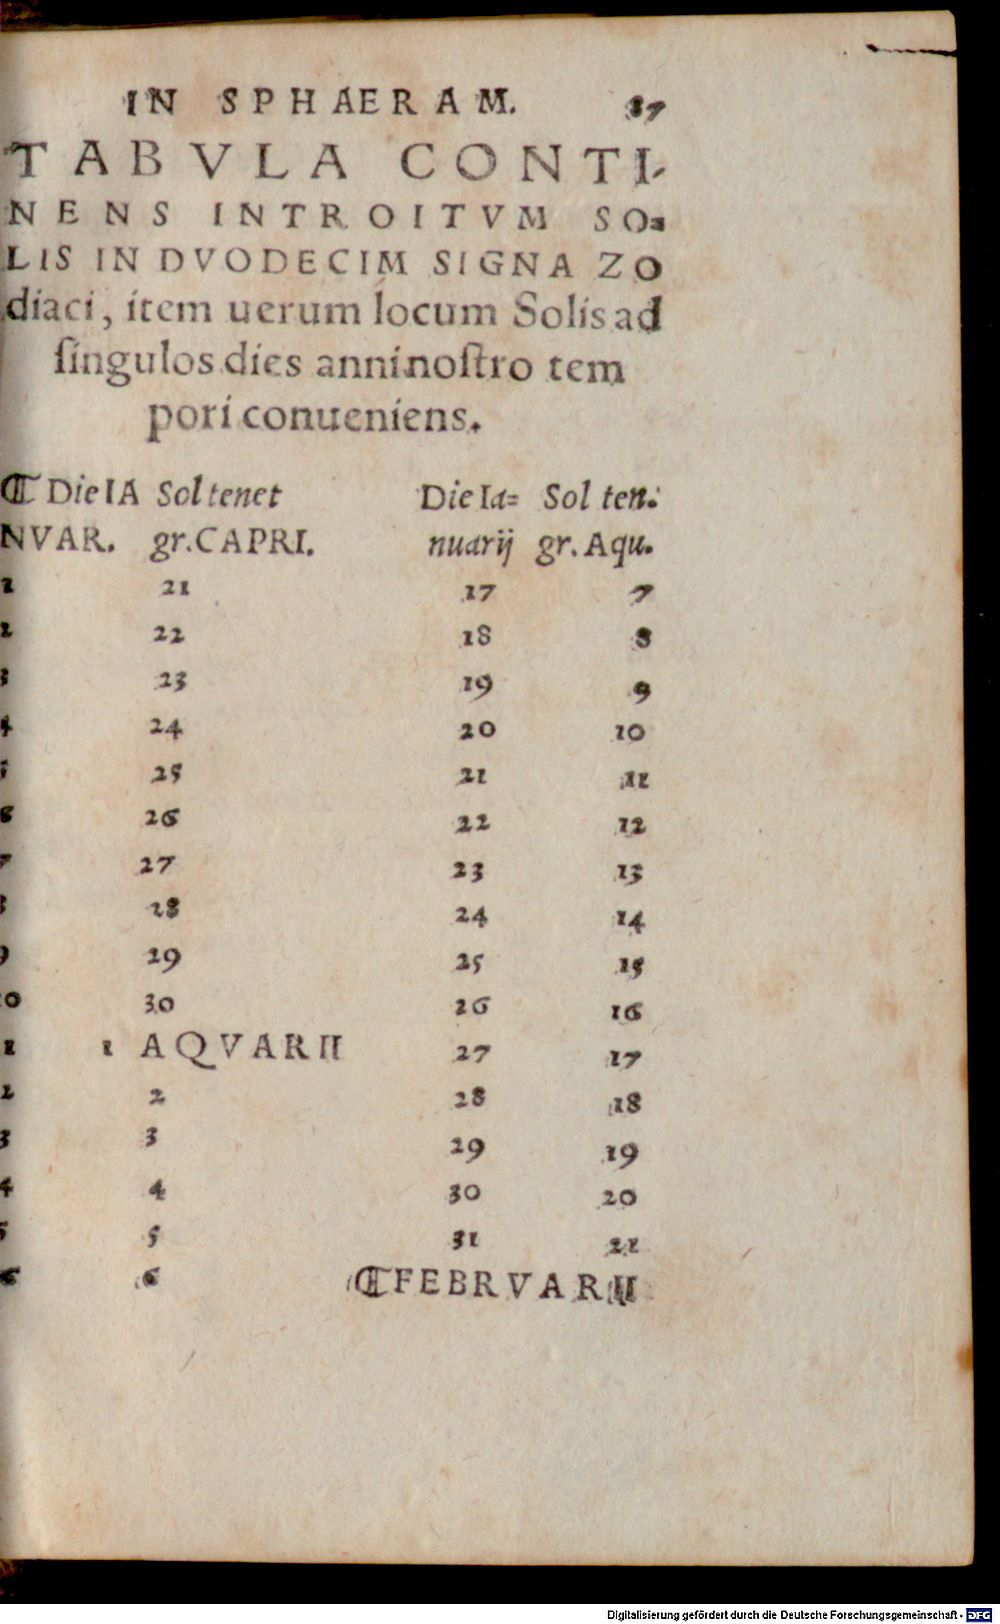 IN SPHAERAM. 87
TABVLA CONTI-
NENS INTROITVM SO=
LIS IN DVODECIM SIGNA ZO
diaci, item uerum locum Solis ad
ſingulos dies anni noſtro tem
pori conueniens.
¶ Die IA Sol tenet
NVAR. gr. CAPRI.
1 21
2 22
3 23
4 24
5 25
6 26
7 27
8 28
9 29
10 30
1 1 AQVARII
2 2
3 3
4 4
5 5
6 6
Die Ia= Sol ten.
nuarij gr. Aqu.
17 7
18 8
19 9
20 10
21 11
22 12
23 13
24 14
25 15
26 16
27 17
28 18
29 19
30 20
31 21
¶ FEBRVARII
Digitalisierung gefördert durch die Deutsche Forschungsgemeinschaft - DFG